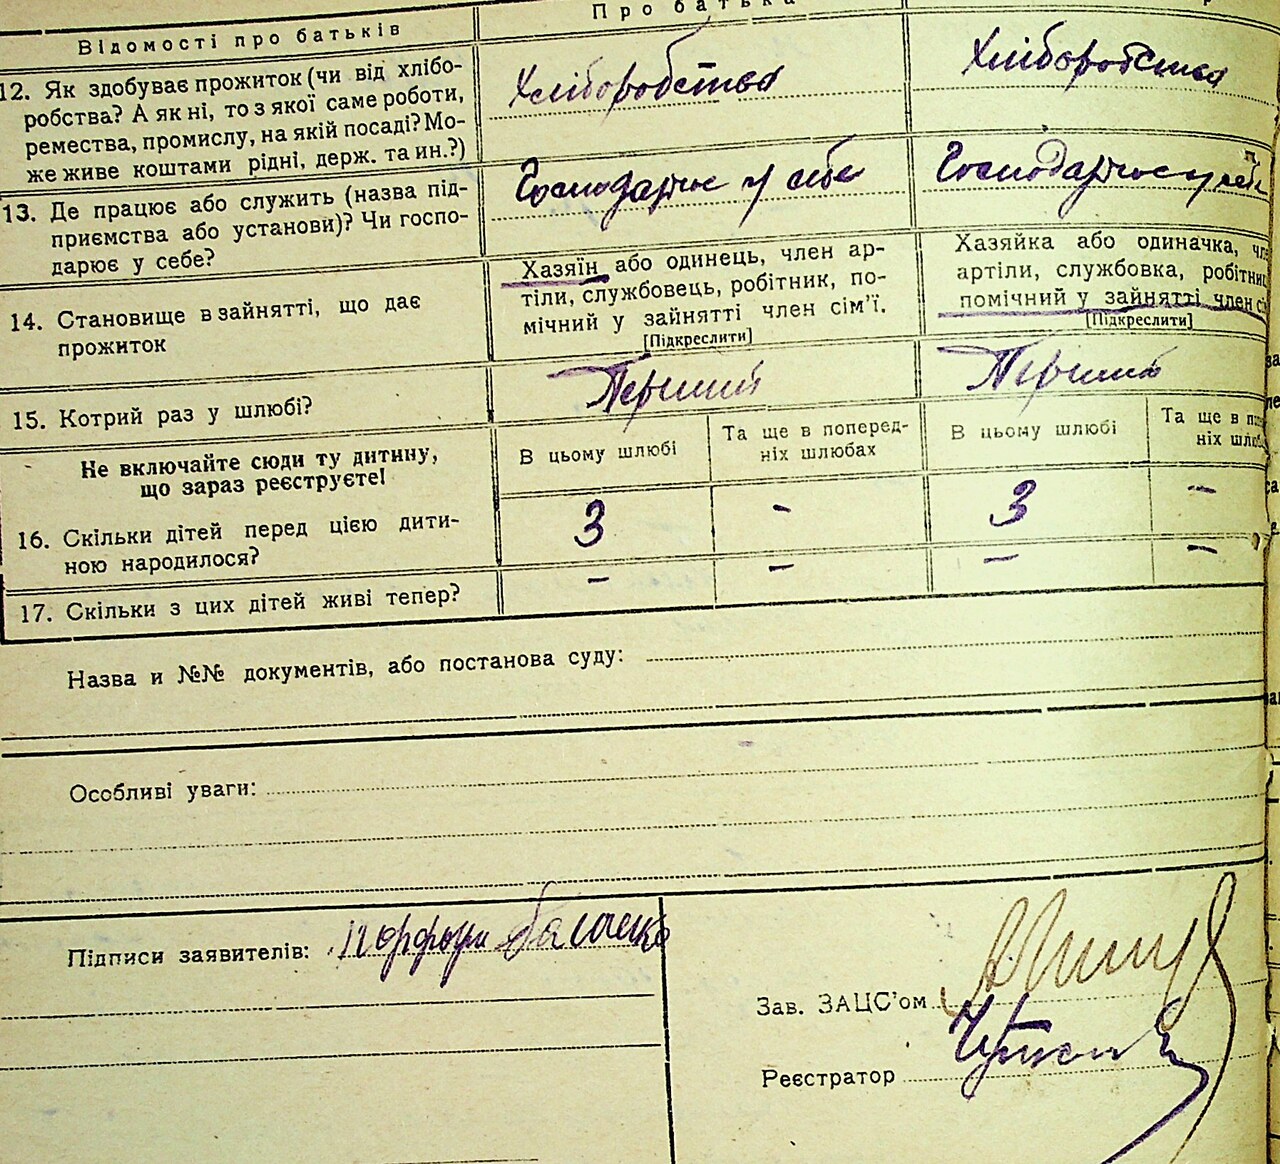 Відомості про батьків
Про батька
12. Як здобуває прожиток (чи від хлібо-
робства? А як ні, то з якої саме роботи,
ремества, промислу, на якій посаді? Мо-
же живе коштами рідні, держ. та ин.?)
Хліборобства
Хліборобства
13. Де працює або служить (назва під-
приємства або установи)? Чи госпо-
дарює у себе?
Господарює у себе
Господарює у себе
14. Становище в зайнятті, що дає
прожиток
Хазяїн або одинець, член ар-
тіли, службовець, робітник, по-
мічний у зайнятті член сім'ї.
[Підкреслити]
Хазяйка або одиначка, чле
артіли, службовка, робітниц
помічний у зайнятті член сі
[Підкреслити]
15. Котрий раз у шлюбі?
Перший
Перший
Не включайте сюди ту дитину,
що зараз реєструєте!
В цьому шлюбі
Та ще в поперед-
ніх шлюбах
В цьому шлюбі
Та ще в попе
ніх шлюб
16. Скільки дітей перед цією дити-
ною народилося?
3
-
3
-
17. Скільки з цих дітей живі тепер?
-
-
-
-
Назва и №№ документів, або постанова суду:
Особливі уваги:
Підписи заявителів:
Зав. ЗАЦС'ом
Реєстратор